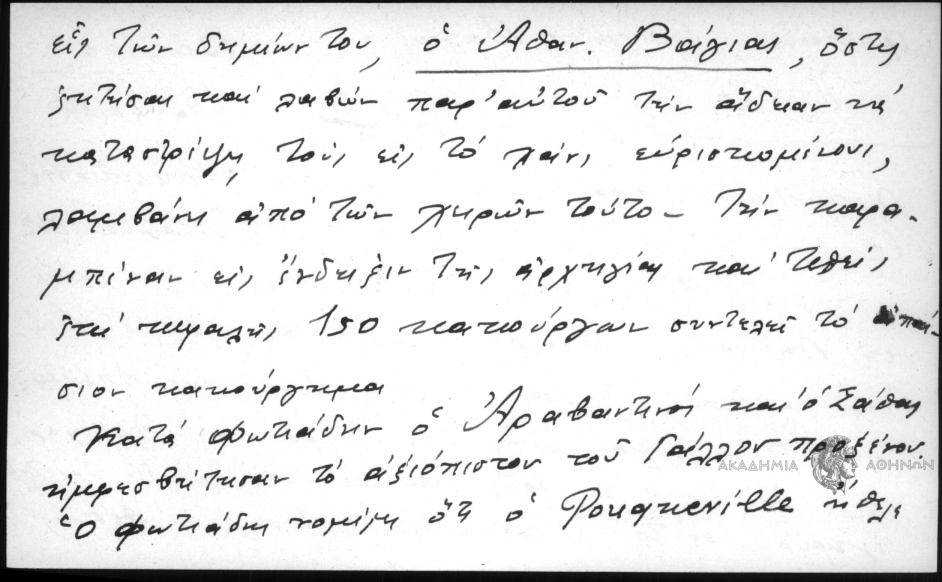 εἷς τῶν δημίων του, ὁ Ἀθαν. Βάγιας, ὅστις
ζητήσας καί λαβών παρ' αὐτοῦ τήν ἄδειαν νά
καταστρέψῃ τούς εἰς τό χάνι εὑρισκομένους,
λαμβάνει ἀπό τῶν χειρῶν τούτου τήν καρα-
μπίναν εἰς ἔνδειξιν τῆς ἀρχηγίας καί τεθείς
ἐπί κεφαλῆς 150 κακούργων συντελεῖ τό ἀπαί-
σιον κακούργημα
Κατά Φωτιάδην ὁ Ἀραβαντινός καί ὁ Σάθας
ἠμφεσβήτησαν τό ἀξιόπιστον τοῦ Γάλλου προξένου.
Ὁ Φωτιάδης νομίζει ὅτι ὁ Pouqueville ἤθελε
ΑΚΑΔΗΜΙΑ ΑΘΗΝΩΝ